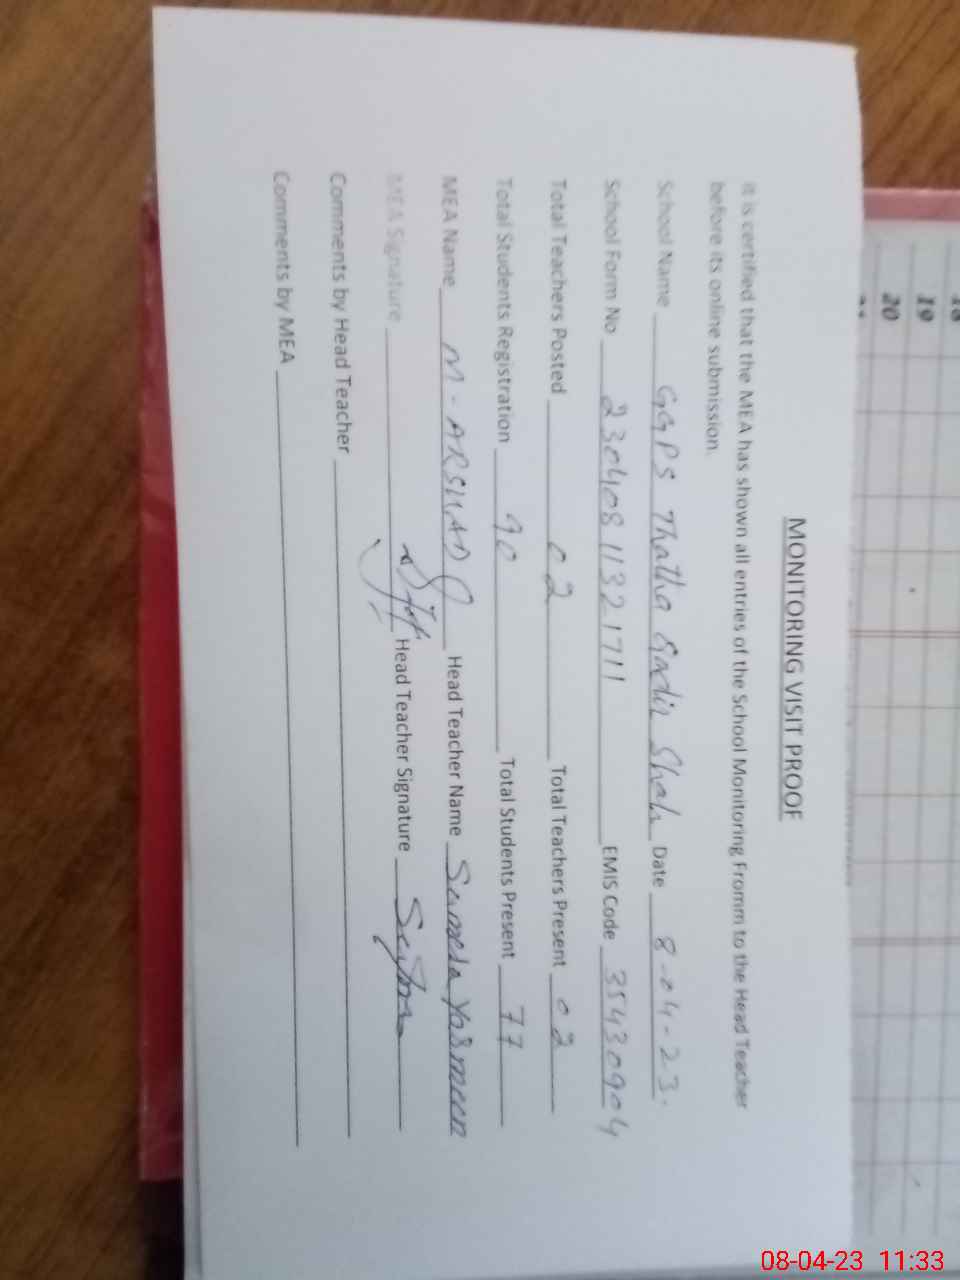 MONITORING VISIT PROOF
It is certified that the MEA has shown all entries of the School Monitoring Fromm to the Head Teacher
before its online submission.
School Name GGPS Thatha Qadir Shah Date 8-04-23.
School Form No 23040811321711 EMIS Code 35430904
Total Teachers Posted 02 Total Teachers Present 02
Total Students Registration 90 Total Students Present 77
MEA Name M-ARSHAD Head Teacher Name Yasmeen
MEA Signature Head Teacher Signature
Comments by Head Teacher
Comments by MEA
18
19
20
08-04-23 11:33